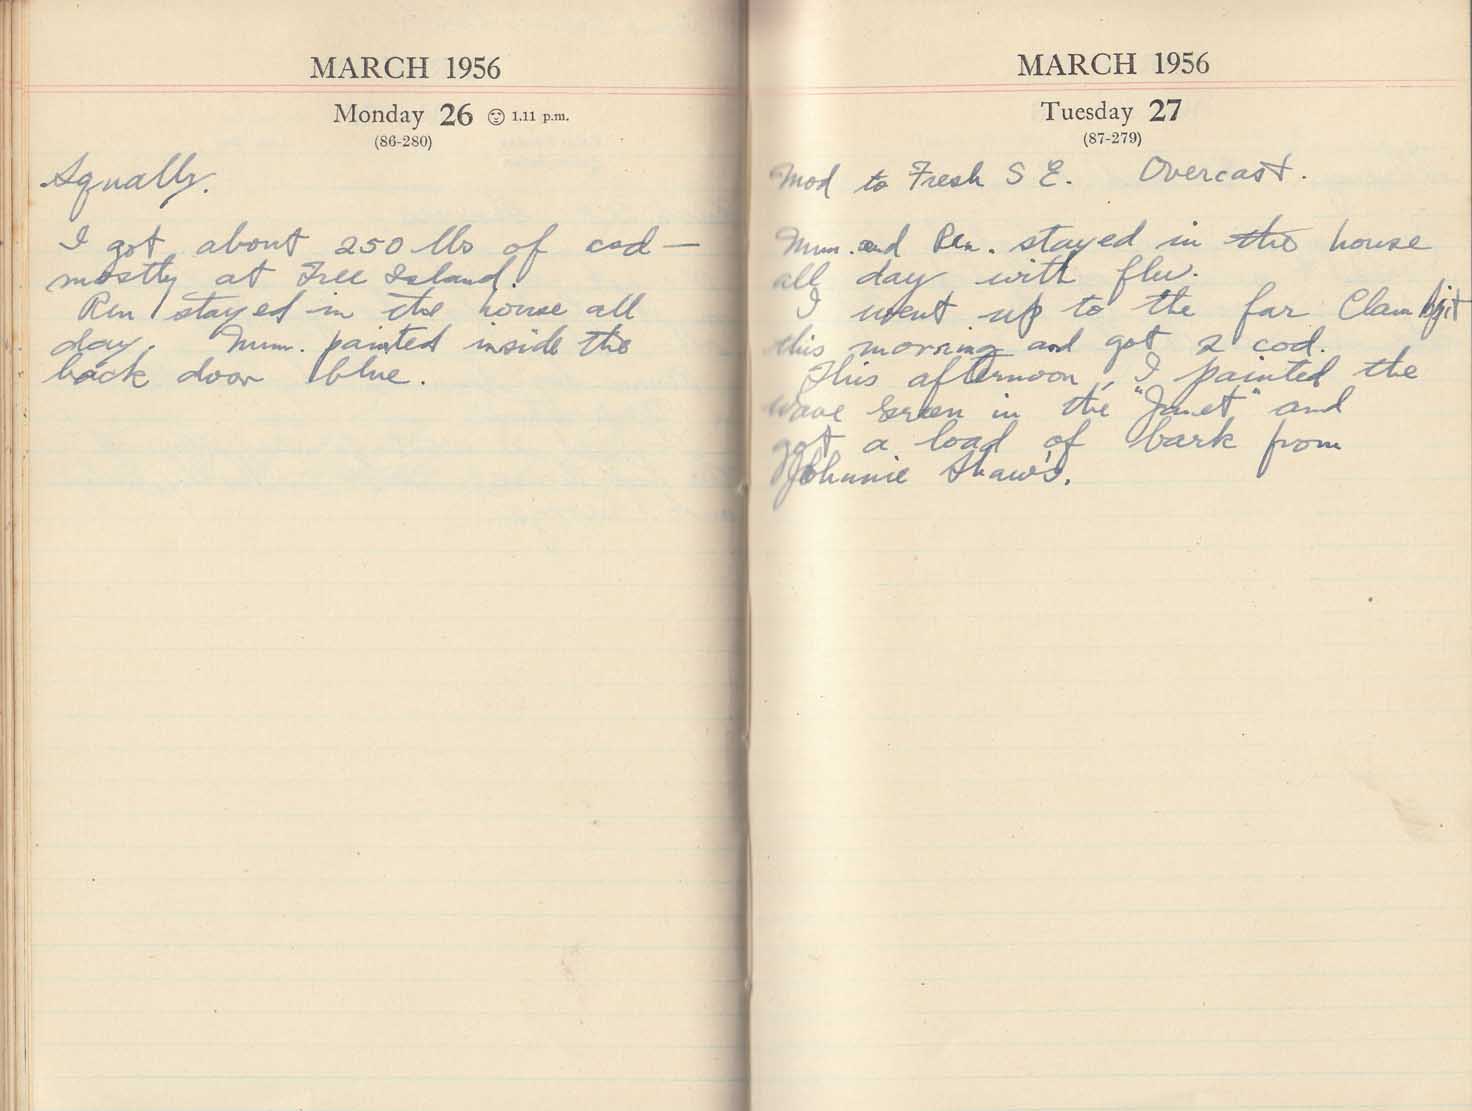 MARCH 1956
Monday 26 1.11 p.m.
(86-280)
Squally.
I got about 250 lbs of cod —
mostly at Tree Island.
Pen stayed in the house all
day. Mum. painted inside the
back door blue.
MARCH 1956
Tuesday 27
(87-279)
Mod to Fresh S E. Overcast.
Mum. and Pen. stayed in the house
all day with flu.
I went up to the far Clam
this morning and got 2 cod.
This afternoon, I painted the
wave Green in the "Janet" and
got a load of bark from
Johnnie Shaw's.